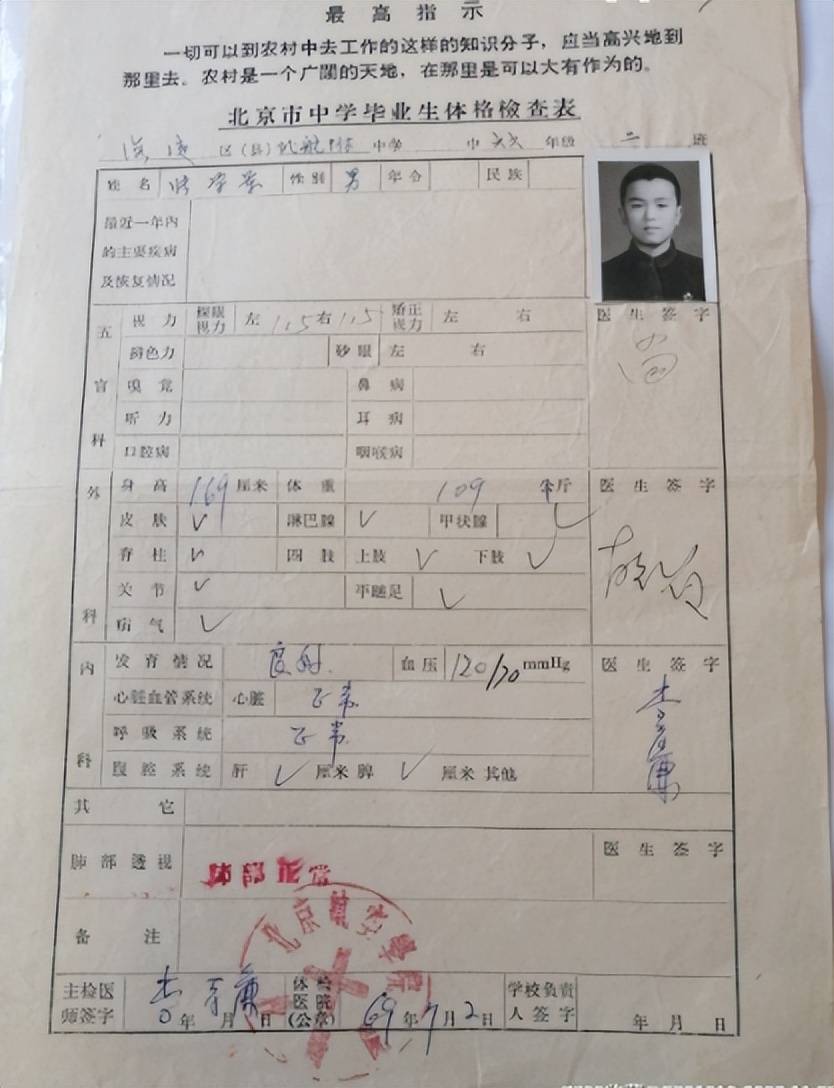 最高指示
一切可以到农村中去工作的这样的知识分子，应当高兴地到
那里去。农村是一个广阔的天地，在那里是可以大有作为的。
北京市中学毕业生体格检查表
区（县） 中学 年级 二 班
姓名 性别 男 年令 民族
最近一年内
的主要疾病
及恢复情况
五官科 视力 裸眼视力 左 1.5 右 1.5 矫正视力 左 右 医生签字
辨色力 砂眼 左 右
嗅觉 鼻病
听力 耳病
口腔病 咽喉病
外科 身高 169 厘米 体重 109 斤 医生签字
皮肤 ✓ 淋巴腺 ✓ 甲状腺 ✓
脊柱 ✓ 四肢 上肢 ✓ 下肢 ✓
关节 ✓ 平蹠足 ✓
疝气 ✓
内科 发育情况 良好 血压 120/70 mmHg 医生签字
心脏血管系统 心脏 正常
呼吸系统 正常
腹腔系统 肝 ✓ 厘米 脾 ✓ 厘米 其他
其它
肺部透视 医生签字
北京航空学院
备注
主检医师签字 年 月 日 体检医院（公章） 69年7月2日 学校负责人签字 年 月 日